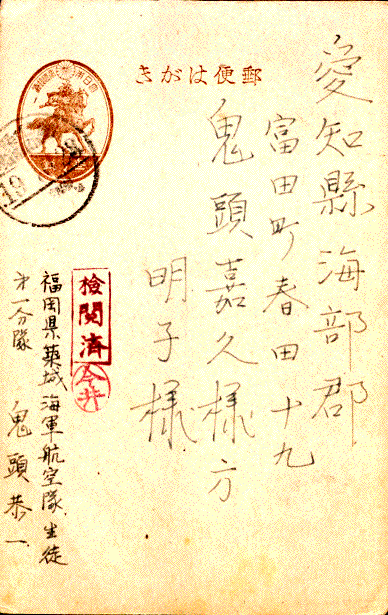 郵便はがき
愛知縣海部郡
富田町春田十九
鬼頭嘉久様方
明子様
検閲済
今井
福岡県築城海軍航空隊生徒
第一分隊
鬼頭恭一